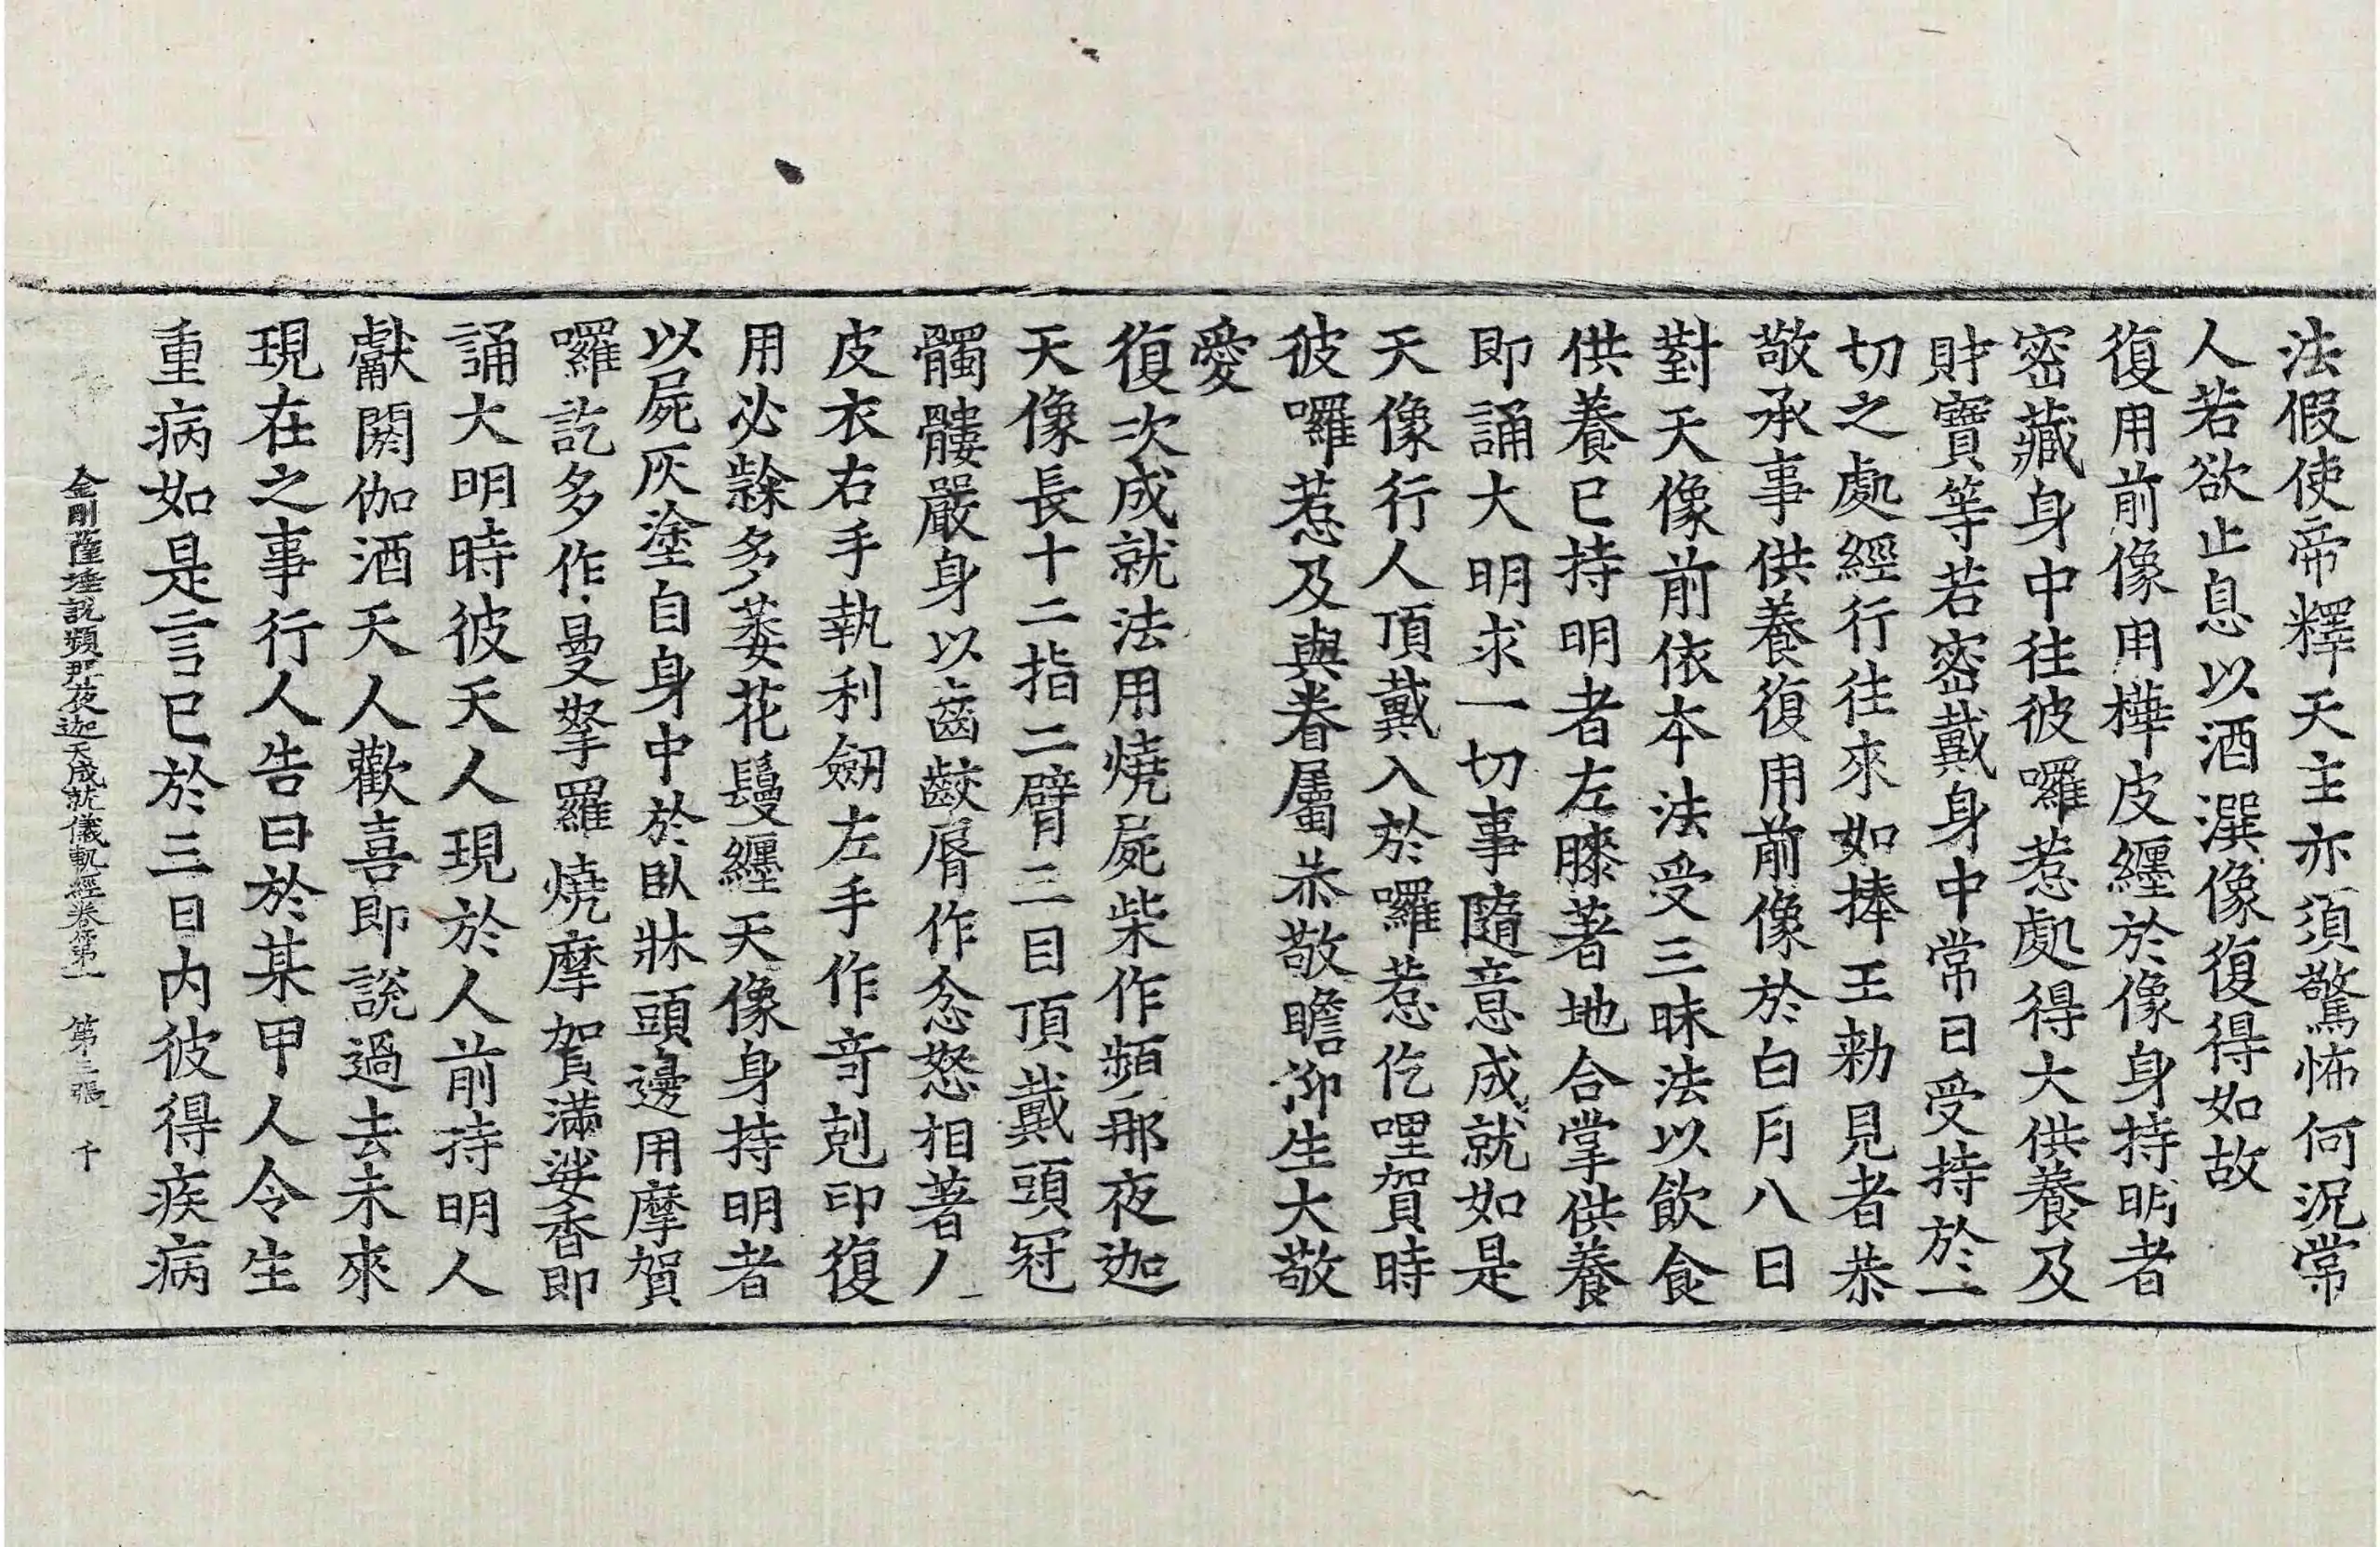 法假使帝釋天主亦須驚怖何況常
人若欲止息以酒潠像復得如故
復用前像用樺皮纏於像身持明者
密藏身中往彼囉惹處得大供養及
財寶等若密戴身中常日受持於一
切之處經行往來如捧王勑見者恭
敬承事供養復用前像於白月八日
對天像前依本法受三昧法以飲食
供養已持明者左膝著地合掌供養
即誦大明求一切事隨意成就如是
天像行人頂戴入於囉惹仡哩賀時
彼囉惹及與眷屬恭敬瞻仰生大敬
愛
復次成就法用燒屍柴作頻那夜迦
天像長十二指二臂三目頂戴頭冠
髑髏嚴身以齒齩脣作忿怒相著人
皮衣右手執利劒左手作竒剋印復
用必隸多蒌花鬘纏天像身持明者
以屍灰塗自身中於臥牀頭邊用摩賀
囉訖多作曼拏羅燒摩賀滿娑香即
誦大明時彼天人現於人前持明人
獻閼伽酒天人歡喜即說過去未來
現在之事行人告曰於某甲人令生
重病如是言已於三日內彼得疾病
金剛薩埵說頻那夜迦天成就儀軌經卷第一 第三張 千